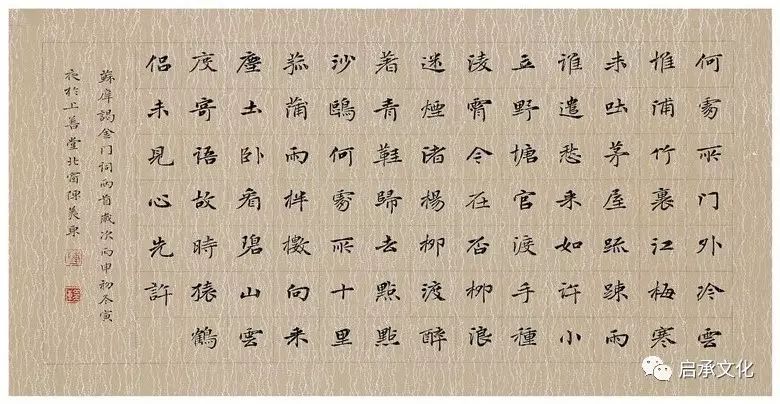 何處所门外冷雲
堆浦竹裏江梅寒
未吐茅屋疏疎雨
誰遣愁来如許小
立野塘官渡手種
淩霄今在否柳浪
迷煙渚楊柳渡醉
著青鞋歸去點點
沙鷗何處所十里
菰蒲雨抖擻向来
塵土卧看碧山雲
度寄語故時猿鶴
侶未見心先許
蘇庠謁金门詞两首歲次丙申初冬寅
夜於上善堂北窗陳
启承文化